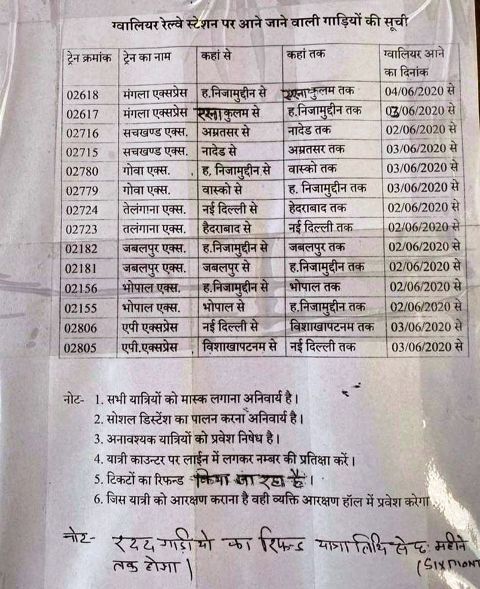 ग्वालियर रेल्वे स्टेशन पर आने जाने वाली गाड़ियों की सूची
ट्रेन क्रमांक ट्रेन का नाम कहां से कहां तक ग्वालियर आने का दिनांक
02618 मंगला एक्सप्रेस ह.निजामुद्दीन से एरनाकुलम तक 04/06/2020 से
02617 मंगला एक्सप्रेस एरनाकुलम से ह.निजामुद्दीन तक 03/06/2020 से
02716 सचखण्ड एक्स. अमृतसर से नादेड तक 02/06/2020 से
02715 सचखण्ड एक्स. नादेड से अमृतसर तक 03/06/2020 से
02780 गोवा एक्स. ह. निजामुद्दीन से वास्को तक 03/06/2020 से
02779 गोवा एक्स. वास्को से ह. निजामुद्दीन तक 03/06/2020 से
02724 तेलंगाना एक्स. नई दिल्ली से हेदराबाद तक 02/06/2020 से
02723 तलंगाना एक्स. हैदराबाद से नई दिल्ली तक 02/06/2020 से
02182 जबलपुर एक्स. ह.निजामुद्दीन से जबलपुर तक 02/06/2020 से
02181 जबलपुर एक्स. जबलपुर से ह.निजामुद्दीन तक 02/06/2020 से
02156 भोपाल एक्स. ह.निजामुद्दीन से भोपाल तक 02/06/2020 से
02155 भोपाल एक्स. भोपाल से ह.निजामुद्दीन तक 02/06/2020 से
02806 एपी एक्सप्रेस नई दिल्ली से विशाखापटनम तक 03/06/2020 से
02805 एपी.एक्सप्रेस विशाखापटनम से नई दिल्ली तक 03/06/2020 से
नोट- 1. सभी यात्रियों को मास्क लगाना अनिवार्य है।
2. सोशल डिस्टेंश का पालन करना अनिवार्य है।
3. अनावश्यक यात्रियों को प्रवेश निषेध है।
4. यात्री काउन्टर पर लाईन में लगकर नम्बर की प्रतिक्षा करें।
5. टिकटों का रिफन्ड किया जा रहा है।
6. जिस यात्री को आरक्षण कराना है वही व्यक्ति आरक्षण हॉल में प्रवेश करेगा
नोट- रदद गाड़ीयो का रिफन्ड यात्रा तिथि से छः महीने
तक होगा। (SIX MONT